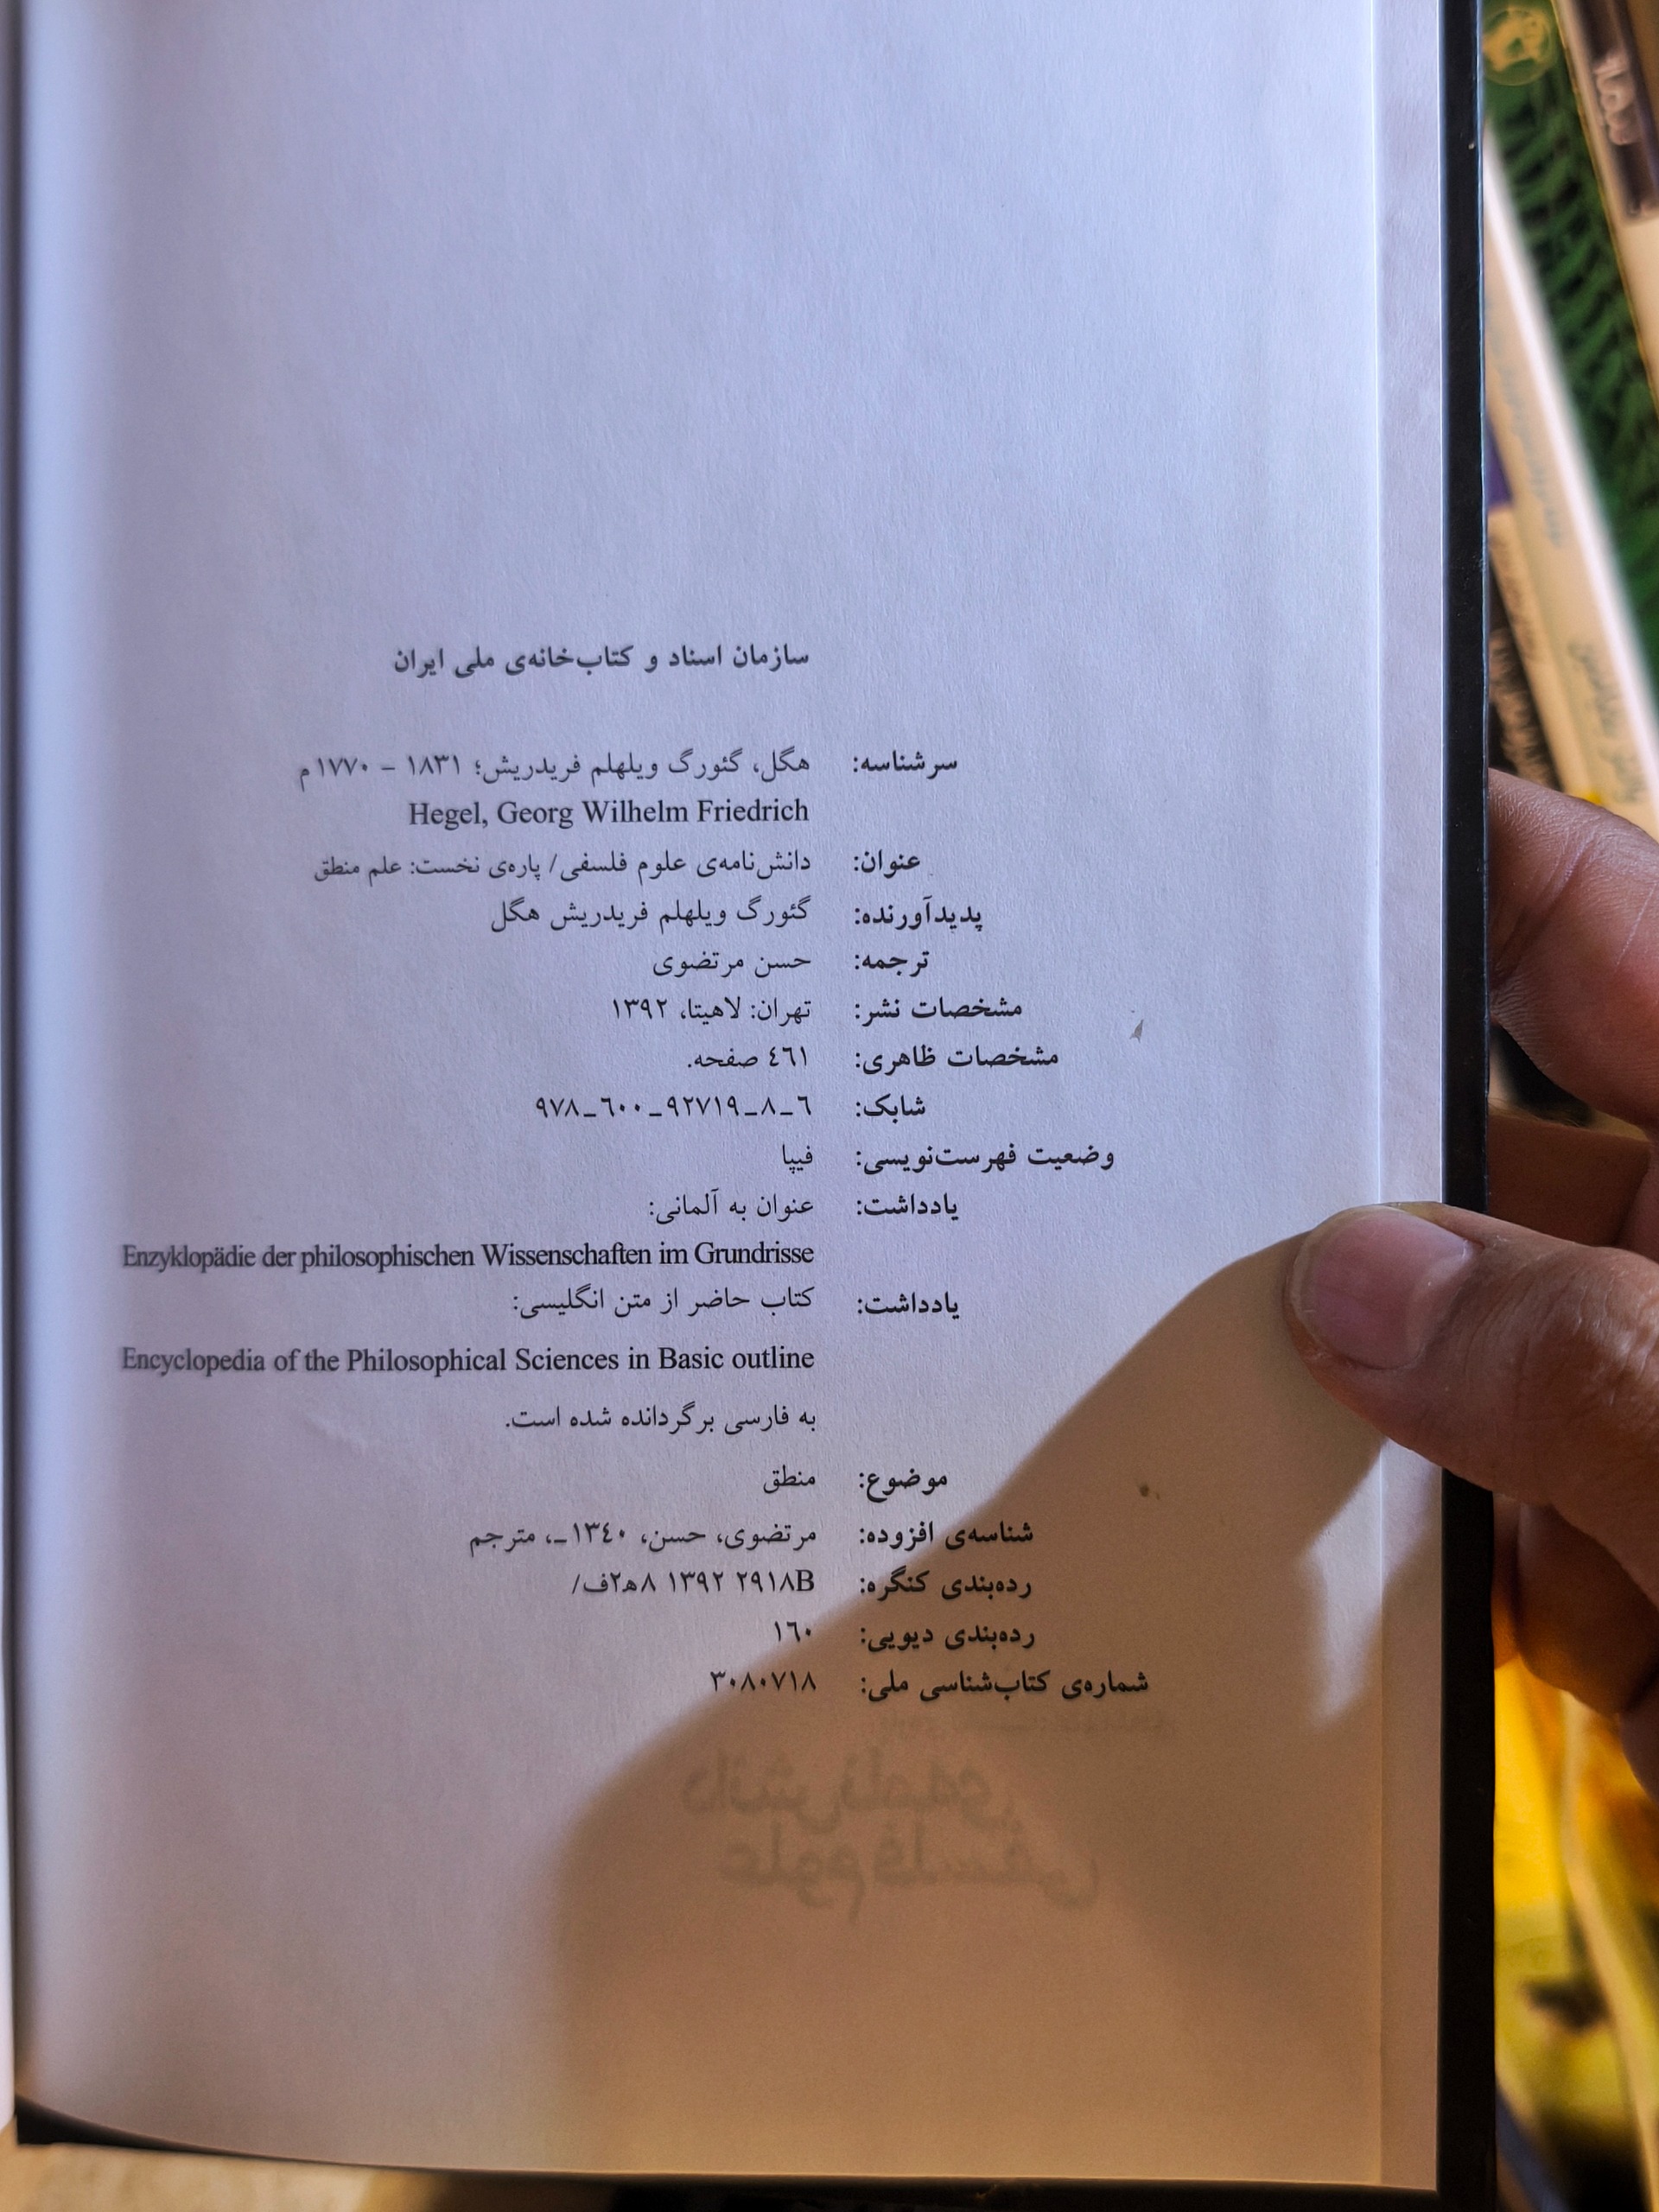 سازمان اسناد و کتاب‌خانه‌ی ملی ایران
سرشناسه: هگل، گئورگ ویلهلم فریدریش؛ ۱۸۳۱ – ۱۷۷۰م
Hegel, Georg Wilhelm Friedrich
عنوان: دانش‌نامه‌ی علوم فلسفی/ پاره‌ی نخست: علم منطق
پدیدآورنده: گئورگ ویلهلم فریدریش هگل
ترجمه: حسن مرتضوی
مشخصات نشر: تهران: لاهیتا، ۱۳۹۲
مشخصات ظاهری: ٤٦۱ صفحه.
شابک: ۹۷۸_٦۰۰_۹۲۷۱۹_۸_٦
وضعیت فهرست‌نویسی: فیپا
یادداشت: عنوان به آلمانی:
Enzyklopädie der philosophischen Wissenschaften im Grundrisse
یادداشت: کتاب حاضر از متن انگلیسی:
Encyclopedia of the Philosophical Sciences in Basic outline
به فارسی برگردانده شده است.
موضوع: منطق
شناسه‌ی افزوده: مرتضوی، حسن، ۱۳٤۰_، مترجم
رده‌بندی کنگره: B۲۹۱۸ ۱۳۹۲ ۸ه۲ف/
رده‌بندی دیویی: ۱٦۰
شماره‌ی کتاب‌شناسی ملی: ۳۰۸۰۷۱۸
دانش‌نامه‌ی
علوم فلسفی